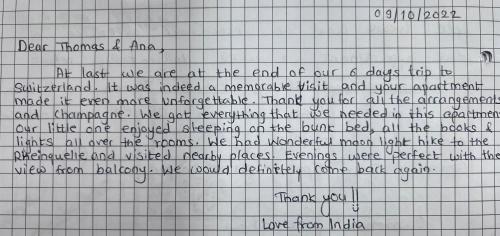 09/10/2022
Dear Thomas & Ana,
At last we are at the end of our 6 days trip to
Switzerland. It was indeed a memorable visit and your apartment
made it even more unforgettable. Thank you for all the arrangements
and champagne. We got everything that we needed in this apartment
Our little one enjoyed sleeping on the bunt bed, all the books &
lights all over the rooms. We had wonderful moon light hike to the
Rheinquelle and visited nearby places. Evenings were perfect with the
view from balcony. We would definitely come back again.
Thank you!!
Love from India